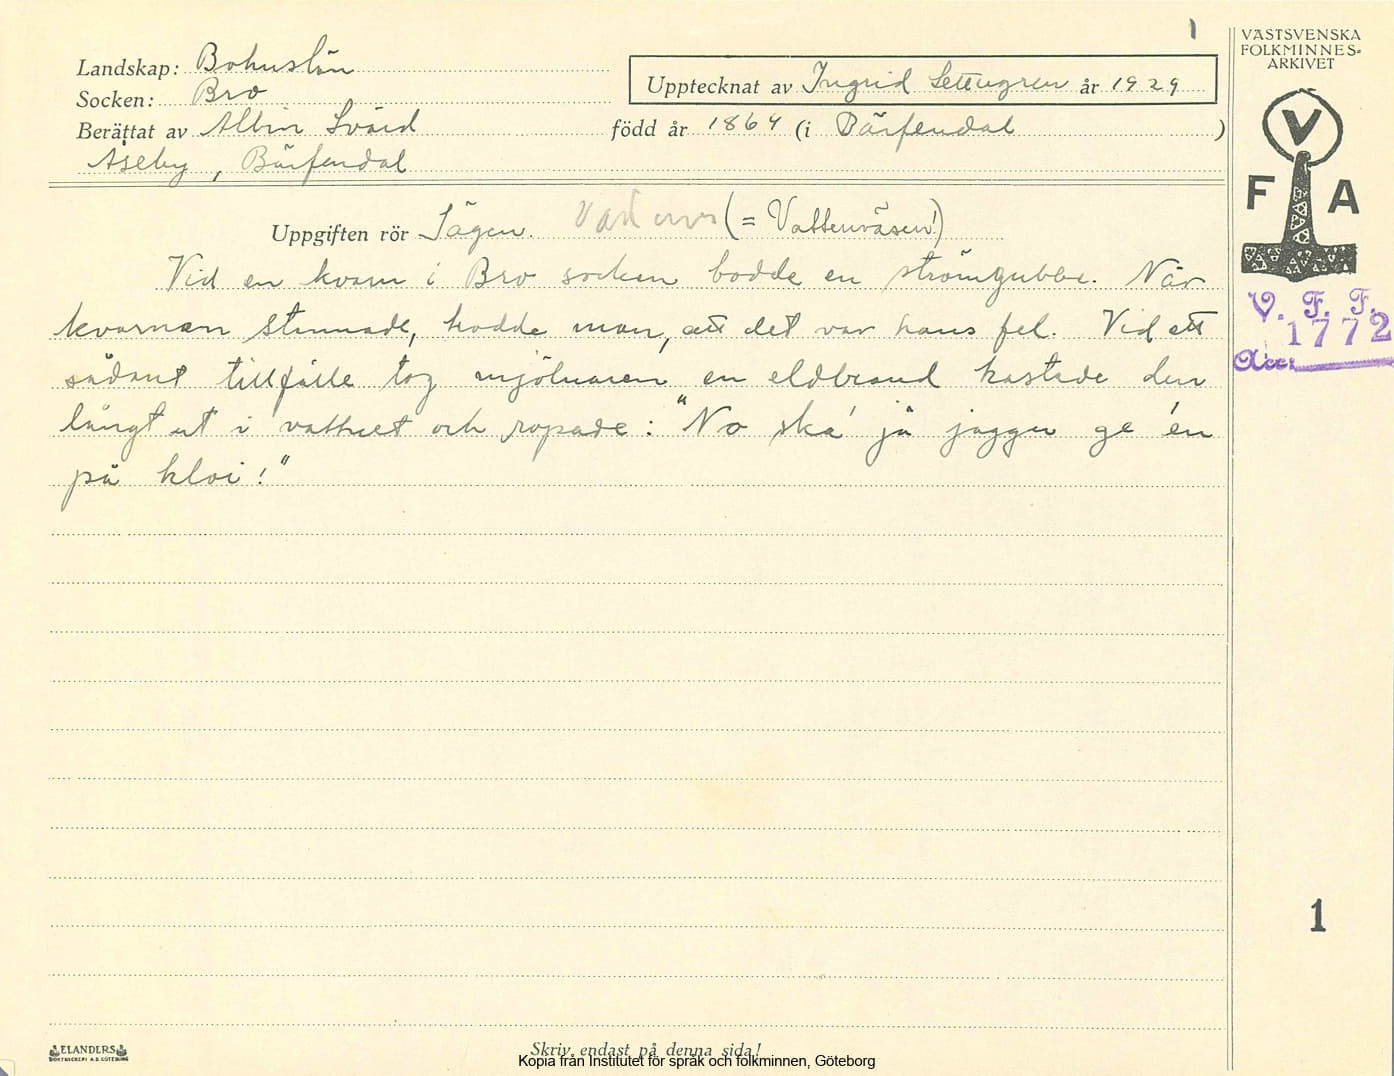 1
VÄSTSVENSKA
FOLKMINNES-
ARKIVET
Landskap: Bohuslän
Socken: Bro
Upptecknat av Ingrid år 1929
Berättat av Albin Svärd född år 1864 (i Bärfendal )
Åseby, Bärfendal
V
F A
Uppgiften rör Sägen. (= Vattenväsen!)
Vid en kvarn i Bro socken bodde en strömgubbe. När
kvarnen stannade, trodde man, att det var hans fel. Vid ett
sådant tillfälle tog mjölnaren en eldbrand kastade den
långt ut i vattnet och ropade: "No ska' jä jagger ge 'en
på kloi!"
V. F. F.
1772
Acc.
1
ELANDERS
BOKTRYCKERI A.B. GÖTEBORG
Skriv endast på denna sida!
Kopia från Institutet för språk och folkminnen, Göteborg